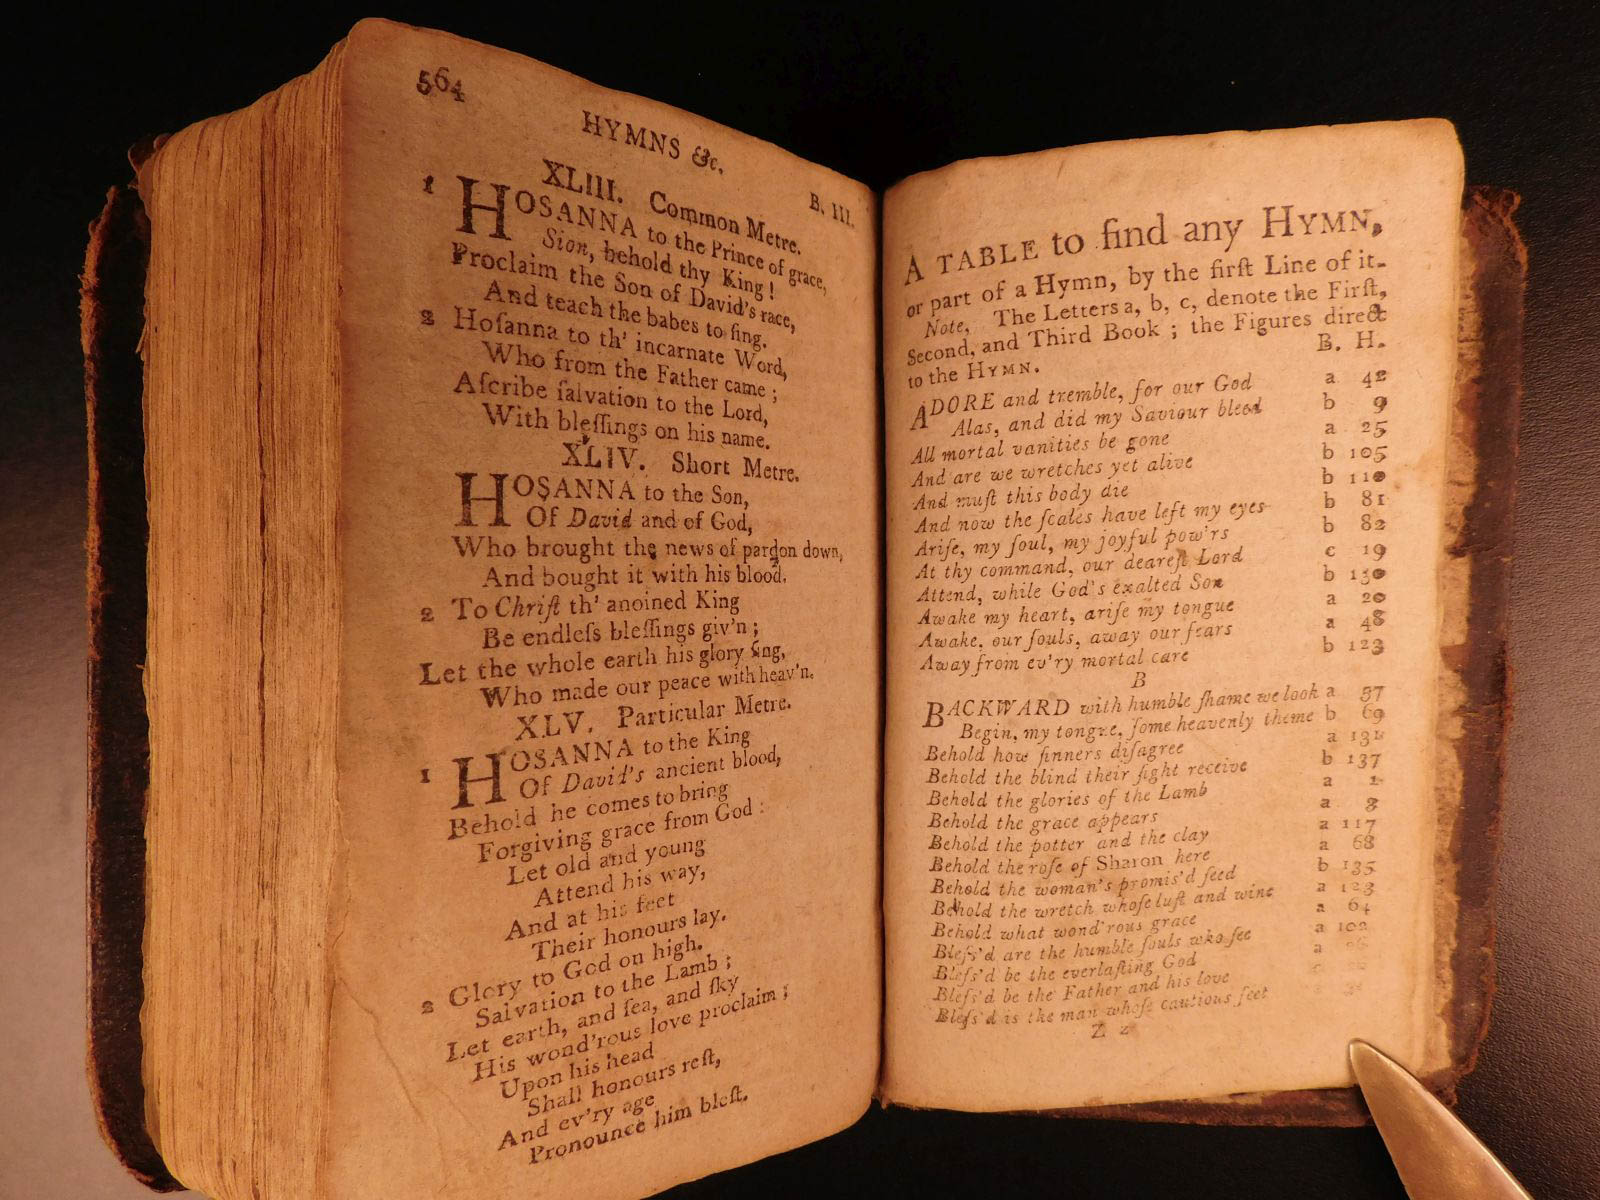 564
HYMNS &c.
B. III.
XLIII. Common Metre.
1 HOSANNA to the Prince of grace,
Sion, behold thy King!
Proclaim the Son of David's race,
And teach the babes to ſing.
2 Hoſanna to th' incarnate Word,
Who from the Father came;
Aſcribe ſalvation to the Lord,
With bleſſings on his name.
XLIV. Short Metre.
HOSANNA to the Son,
Of David and of God,
Who brought the news of pardon down,
And bought it with his blood.
2 To Chriſt th' anoined King
Be endleſs bleſſings giv'n;
Let the whole earth his glory ſing,
Who made our peace with heav'n.
XLV. Particular Metre.
1 HOSANNA to the King
Of David's ancient blood,
Behold he comes to bring
Forgiving grace from God:
Let old and young
Attend his way,
And at his feet
Their honours lay.
2 Glory to God on high.
Salvation to the Lamb;
Let earth, and ſea, and ſky
His wond'rous love proclaim;
Upon his head
Shall honours reſt,
And ev'ry age
Pronounce him bleſt.
A TABLE to find any HYMN,
or part of a Hymn, by the firſt Line of it.
Note, The Letters a, b, c, denote the Firſt,
Second, and Third Book; the Figures direct
to the HYMN.
B. H.
ADORE and tremble, for our God a 42
Alas, and did my Saviour bleed b 9
All mortal vanities be gone a 25
And are we wretches yet alive b 105
And muſt this body die b 110
And now the ſcales have left my eyes b 81
Ariſe, my ſoul, my joyful pow'rs b 82
At thy command, our deareſt Lord c 19
Attend, while God's exalted Son b 130
Awake my heart, ariſe my tongue a 20
Awake, our ſouls, away our fears a 48
Away from ev'ry mortal care b 123
B
BACKWARD with humble ſhame we look a 57
Begin, my tongue, ſome heavenly theme b 69
Behold how ſinners diſagree a 131
Behold the blind their ſight receive b 137
Behold the glories of the Lamb a 1
Behold the grace appears a 3
Behold the potter and the clay a 117
Behold the roſe of Sharon here a 68
Behold the woman's promis'd ſeed b 135
Behold the wretch whoſe luſt and wine a 123
Behold what wond'rous grace a 64
Bleſs'd are the humble ſouls who ſee a 102
Bleſs'd be the everlaſting God a
Bleſs'd be the Father and his love
Bleſs'd is the man whoſe cautious feet
Z z